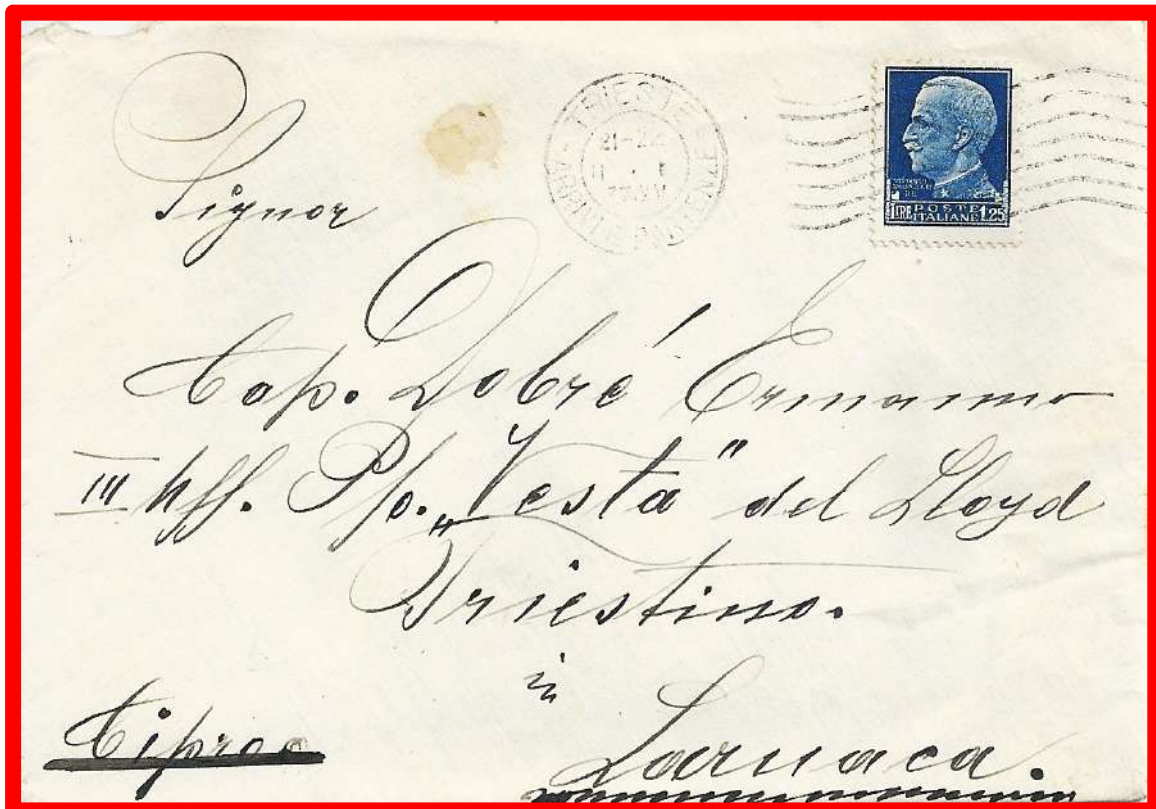 TRIESTE
21-22
LIRE POSTE 1.25
ITALIANE
Signor
Cap. Dobré Ermanno
III Uff. P/fo. „Vesta" del Lloyd
Triestino.
in
Cipro
Larnaca.